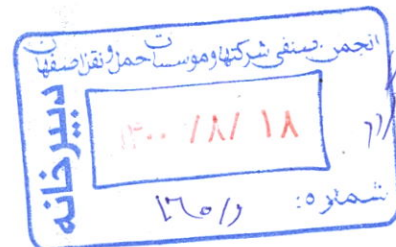 انجمن صنفی شرکتها و موسسات حمل و نقل اصفهان
دبیرخانه
۱۴۰۰/۸/۱۸
شماره: